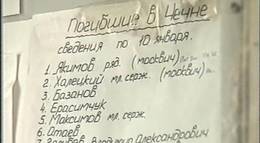 Погибшие в Чечне
сведения по 10 января.
1. Якимов ряд. (москвич)
2. Халецкий мл. серж. (москвич)
3. Базанов
4. Герасимчук
5. Максимов мл. серж.
6. Отаев
Владимир Александрович